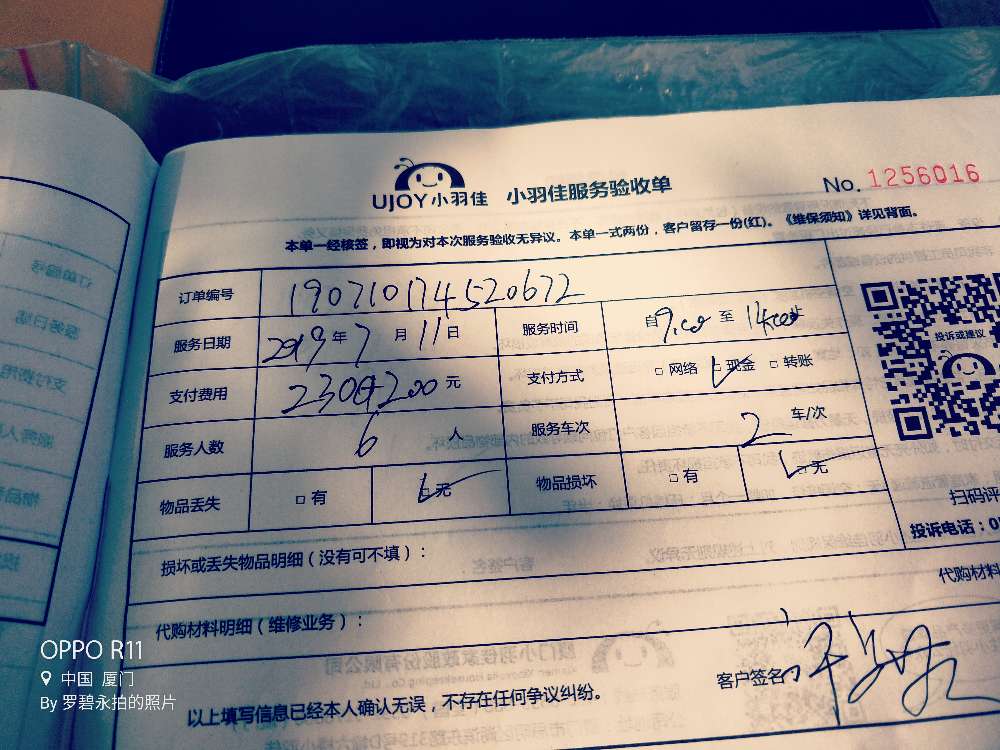 UJOY小羽佳 小羽佳服务验收单 No. 1256016
本单一经核签，即视为对本次服务验收无异议。本单一式两份，客户留存一份(红)。《维保须知》详见背面。
订单编号 190710174520672
服务日期 2019年7月11日 服务时间 自9:00至14:00
支付费用 2300+200元 支付方式 □网络 □现金 □转账
服务人数 6人 服务车次 2车/次
物品丢失 □有 □无 物品损坏 □有 □无
投诉或建议
扫码评
投诉电话：0
损坏或丢失物品明细（没有可不填）：
代购材料
代购材料明细（维修业务）：
客户签名
以上填写信息已经本人确认无误，不存在任何争议纠纷。
OPPO R11
中国 厦门
By 罗碧永拍的照片